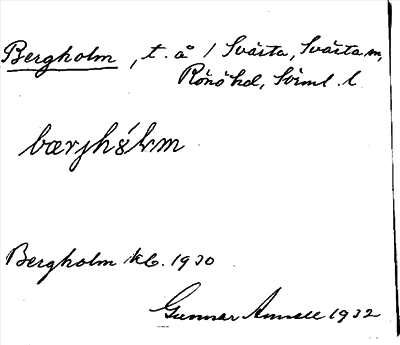 Bergholm, t. å / Svärta, Svärta sn,
Rönö hd, Söiml. l.
bærjhål̀m
Bergholm kb. 1930
Gunnar Annell 1932